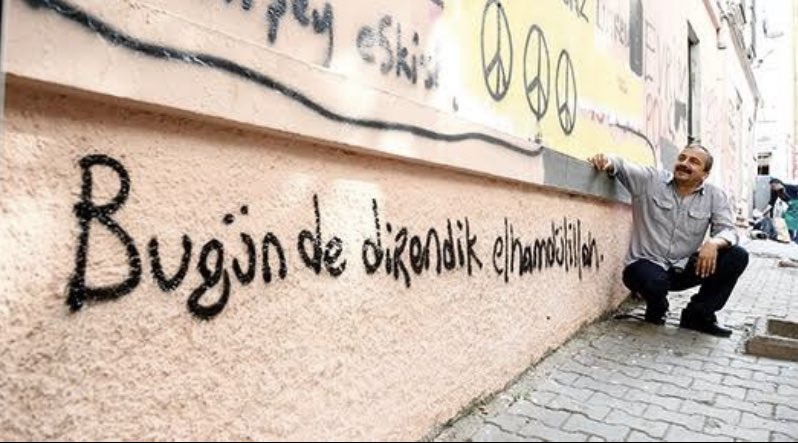 şey eskisi
Bugün de direndik elhamdülillah.